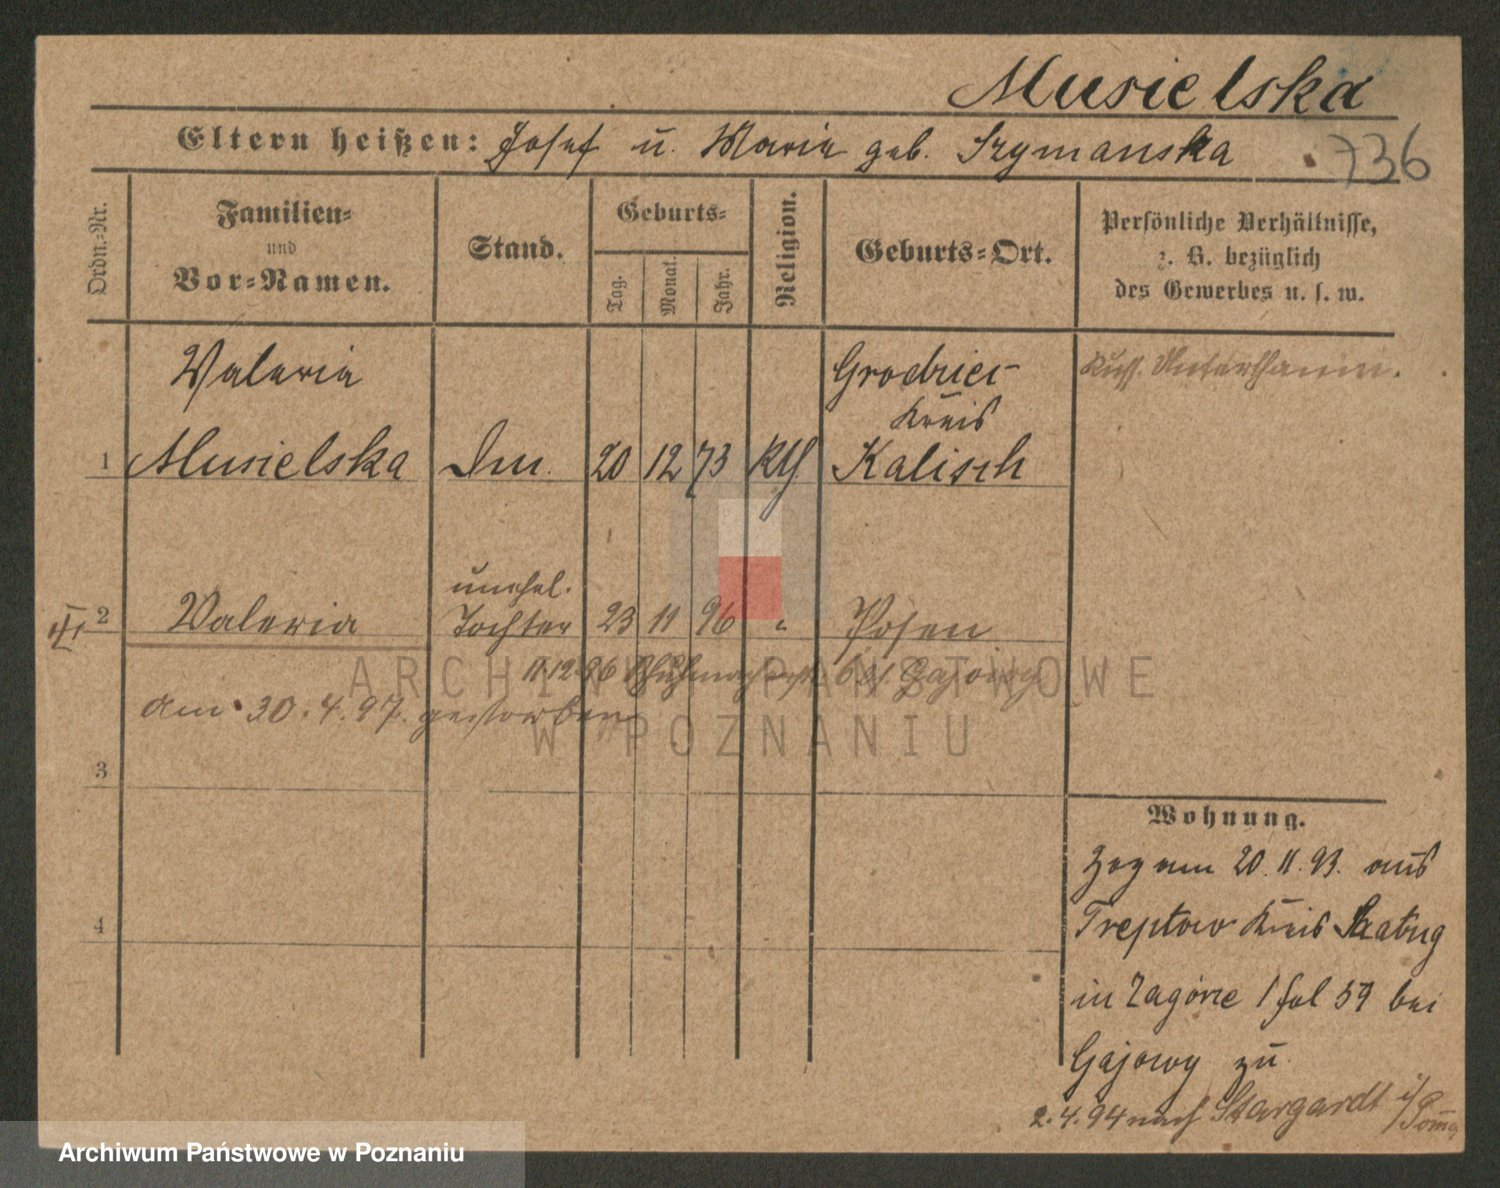 Musielska
Eltern heißen: Josef u. Maria geb. Szymanska
736
Ordn.-Nr.
Familien-
und
Vor-Namen.
Stand.
Geburts-
Tag.
Monat.
Jahr.
Religion.
Geburts-Ort.
Persönliche Verhältnisse,
z. B. bezüglich
des Gewerbes u. s. w.
Valeria
Grodziec
Russ. Unterthanin.
Kreis
1 Musielska 20 12 73 Kth Kalisch
unehel.
2 Valeria Tochter 23 11 96 " Posen
11.12.96 bei Gajowy
am 30.4.97. gestorben
ARCHIWUM PAŃSTWOWE
W POZNANIU
3
Wohnung.
Zog am 20.11.93. aus
4
Treptow Kreis
in Zagórze 1 fol 59 bei
Gajowy zu
2.4.94 nach Stargardt i/Pom
Archiwum Państwowe w Poznaniu